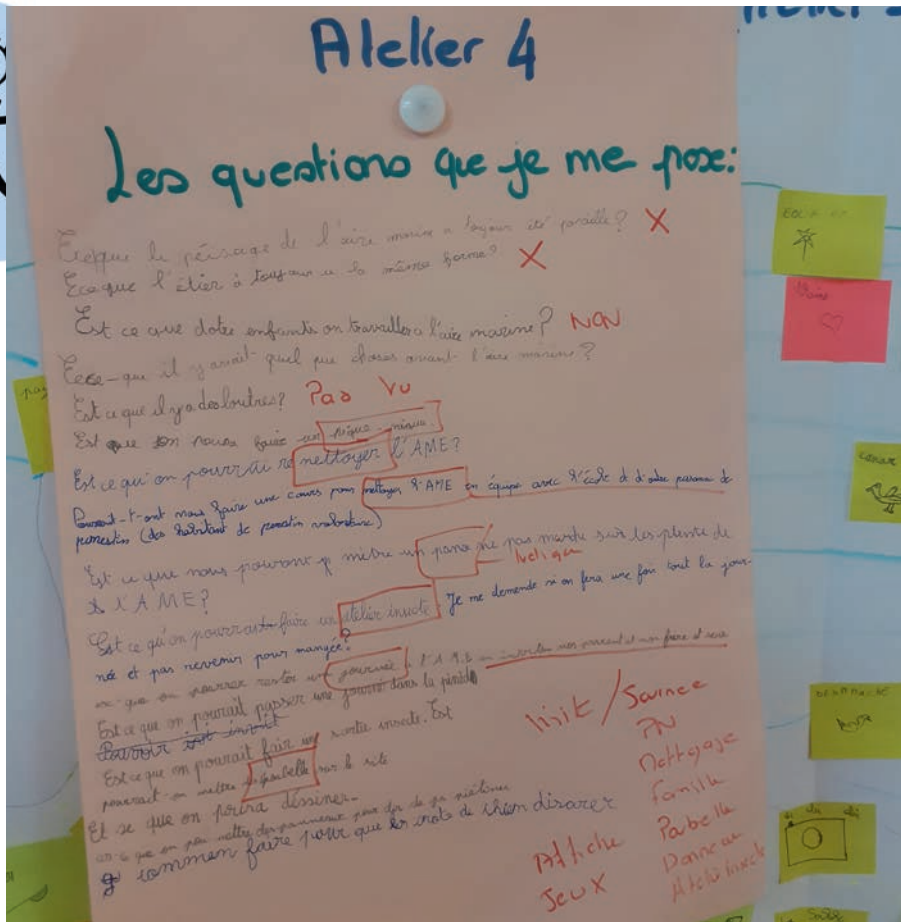 Atelier 4
Les questions que je me pose:
Ecesque le péisage de l'aire marine a toujour été pareille? X
Ecesque l'étier à toujour u la même forme? X
Est ce que dotre enfants on travuiller a l'aire marine? NON
Eece-que il y avait quel que choses avant l'aire marine?
Est ce que il y a des loutres? Pas Vu
Est que on pourra faire un pique-nique.
Est ce qu'on pourrai re nettoyer l'AME?
Pourrait-t-ont nous faire une cours pour nettoyer l'AME en équipe avec l'école et d'autre personne de
(des habitant de volontaire)
Est ce que nous pouvont mètre un pano ne pas marché sur les plente de
l'AME?
Est ce qu'on pourrait faire un atelié insecte. Je me demande si on fera une fois tout la jour-
né et pas revenir pour mangée?
ce que on pourrer rester une journée a l'AME en invitan nos parent et nos frère et seur
Est ce que on pourait passer une journé dans la
Pouvoir
Est ce que on pourait fair une sortie insecte. Est
pourrait-on mettre poubelle sur le site
Et se que on poura déssiner.
ce que on peu mettre des panneaux pour dir de pa piétiner
commen faire pour que les crots de chien
Visite / Soirée
PN
Nettoyage
Famille
Poubelle
Panneau
Atelier insecte
Affiche
Jeux